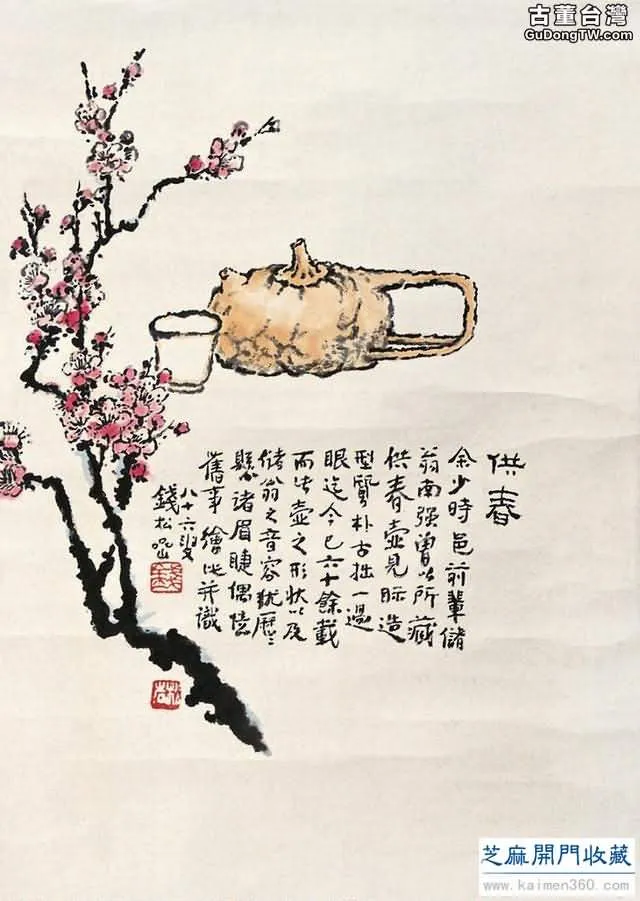 古董台灣
GuDongTW.com
供春
余少時邑前輩儲
翁南强曾以所藏
供春壺見眎造
型質朴古拙一過
眼迄今已六十餘載
而此壺之形狀以及
儲翁之音容猶歷〻
懸諸眉睫偶憶
舊事繪此并識
八十六叟
錢松喦
芝麻開門收藏
www.kaimen360.com